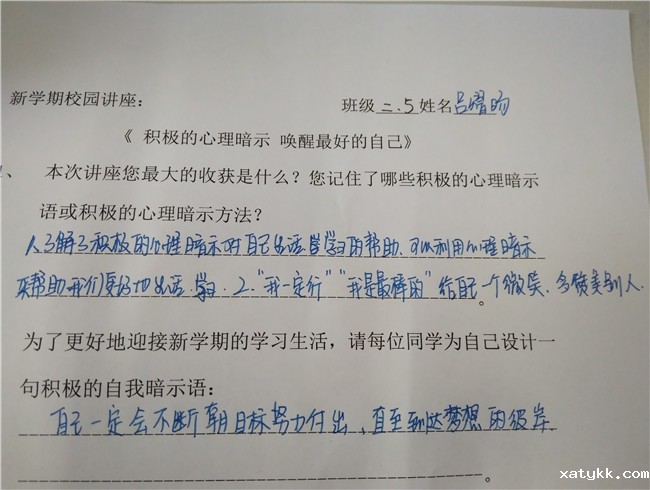 新学期校园讲座：
班级 二.5 姓名 吕
《 积极的心理暗示 唤醒最好的自己》
、 本次讲座您最大的收获是什么？您记住了哪些积极的心理暗示
语或积极的心理暗示方法？
1.了解了积极的心理暗示对自己生活学习的帮助.可以利用心理暗示
来帮助我们更好地生活.学习. 2."我一定行" "我是最棒的" 给自己一个微笑.多赞美别人.
。
为了更好地迎接新学期的学习生活，请每位同学为自己设计一
句积极的自我暗示语：
自己一定会不断朝目标努力付出，直至到达梦想的彼岸
。
xatykk.com